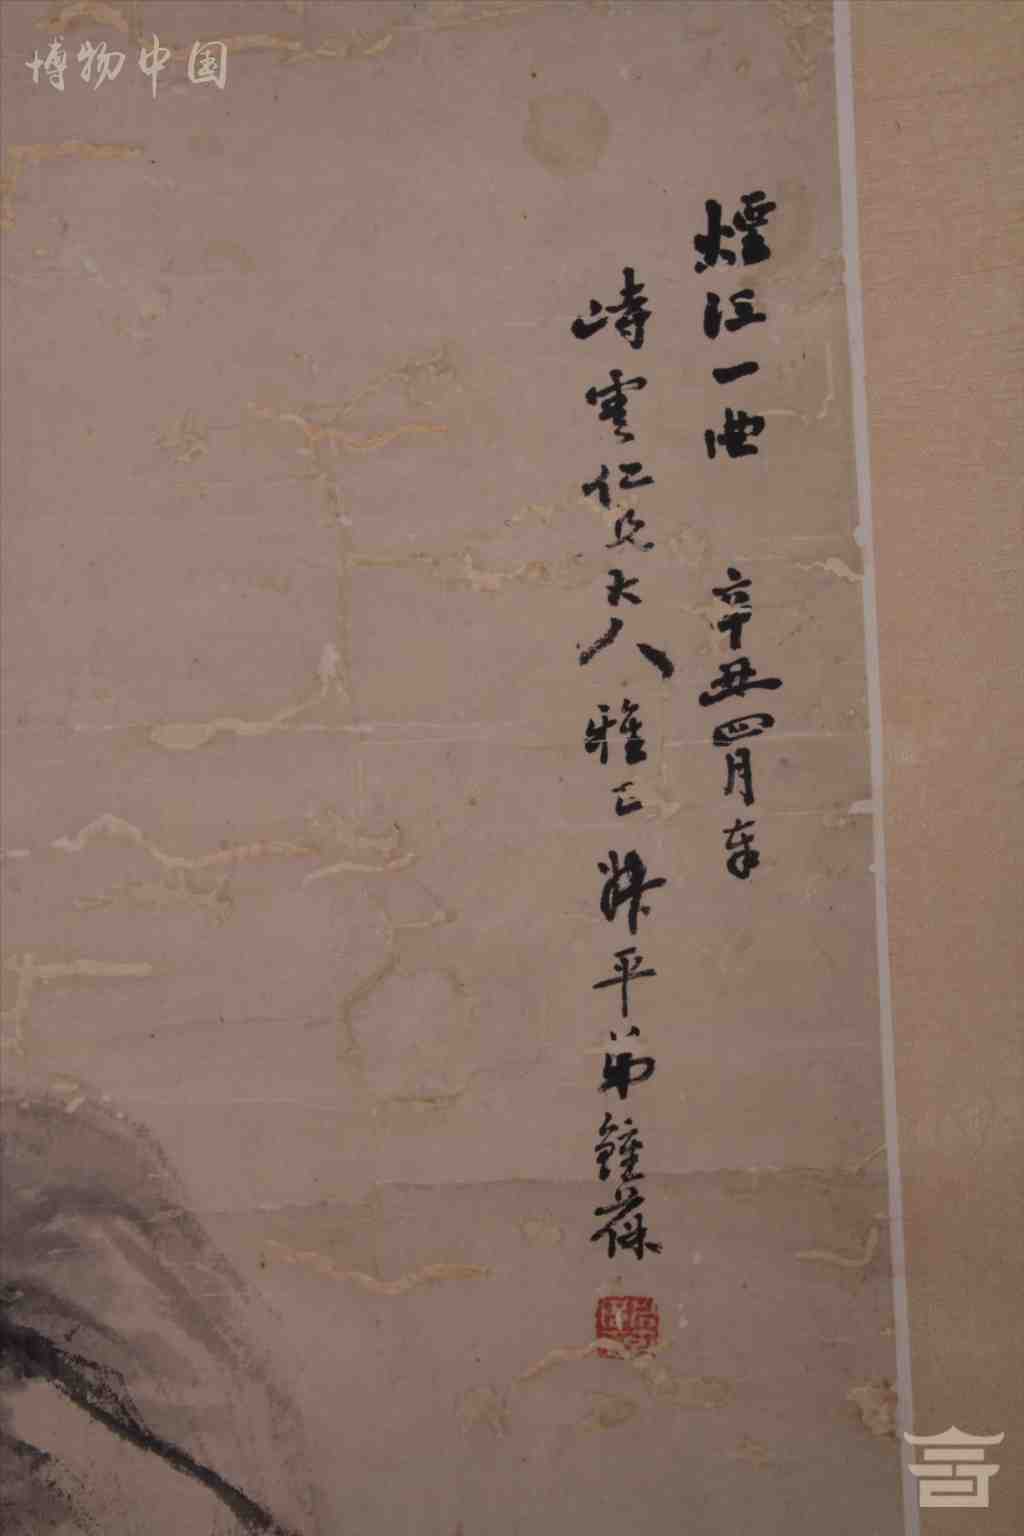 博物中国
煙江一曲 辛丑四月奉
峙雲仁兄大人雅正 潞平弟鍾葆